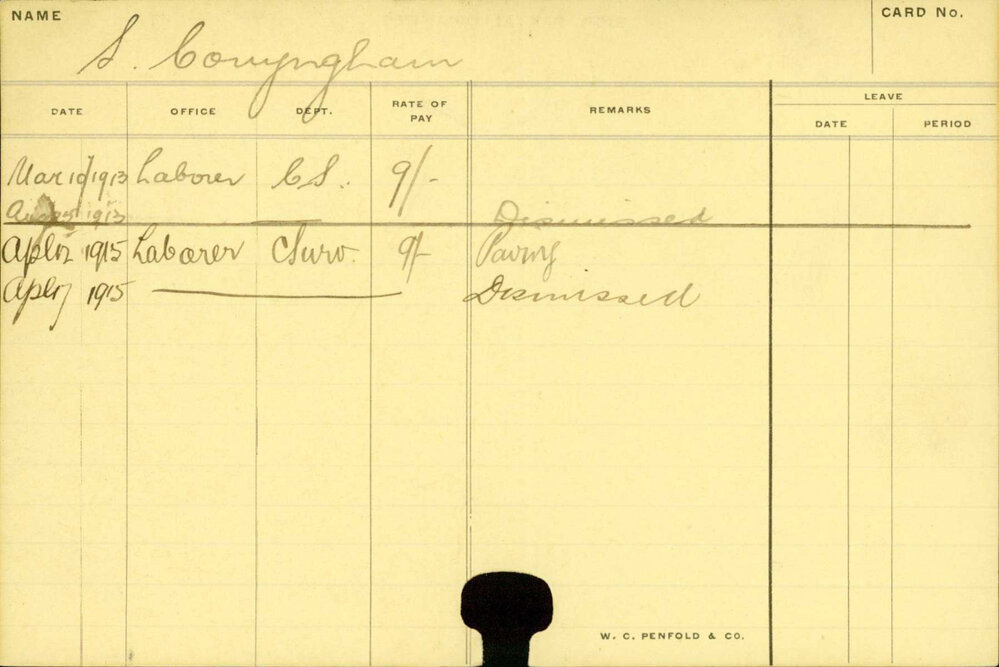 NAME
CARD No.
S. Conyngham
DATE OFFICE DEPT. RATE OF PAY REMARKS LEAVE
DATE PERIOD
Mar 1913 Laborer C S. 9/-
Aug 25 1913 Dismissed
Apl 1915 Laborer CSurv. 9/- Paving
Apl 1915 Dismissed
W. C. PENFOLD & CO.